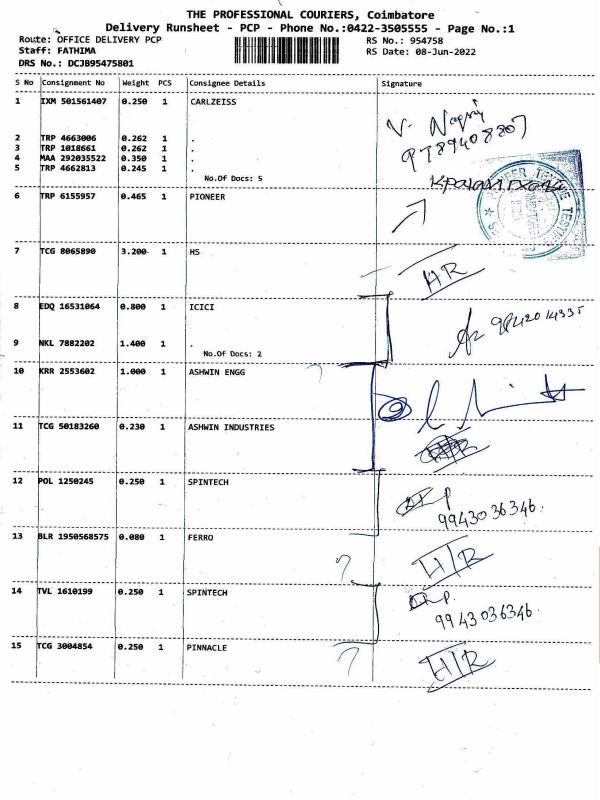 THE PROFESSIONAL COURIERS, Coimbatore
Delivery Runsheet - PCP - Phone No.:0422-3505555 - Page No.:1
Route: OFFICE DELIVERY PCP RS No.: 954758
Staff: FATHIMA RS Date: 08-Jun-2022
DRS No.: DCJB95475801
S No Consignment No Weight PCS Consignee Details Signature
1 IXM 501561407 0.250 1 CARLZEISS
V.
9789408807
2 TRP 4663006 0.262 1 .
3 TRP 1018661 0.262 1 .
4 MAA 292035522 0.350 1 .
5 TRP 4662813 0.245 1 .
No.Of Docs: 5
6 TRP 6155957 0.465 1 PIONEER
7 TCG 8065890 3.200 1 HS
HR
8 EDQ 16531064 0.800 1 ICICI
9 NKL 7882202 1.400 1 .
No.Of Docs: 2
10 KRR 2553602 1.000 1 ASHWIN ENGG ?
11 TCG 50183260 0.230 1 ASHWIN INDUSTRIES
12 POL 1250245 0.250 1 SPINTECH
9943036346.
13 BLR 1950568575 0.080 1 FERRO
? H/R
14 TVL 1610199 0.250 1 SPINTECH
9943036346.
15 TCG 3004854 0.250 1 PINNACLE
? H/R